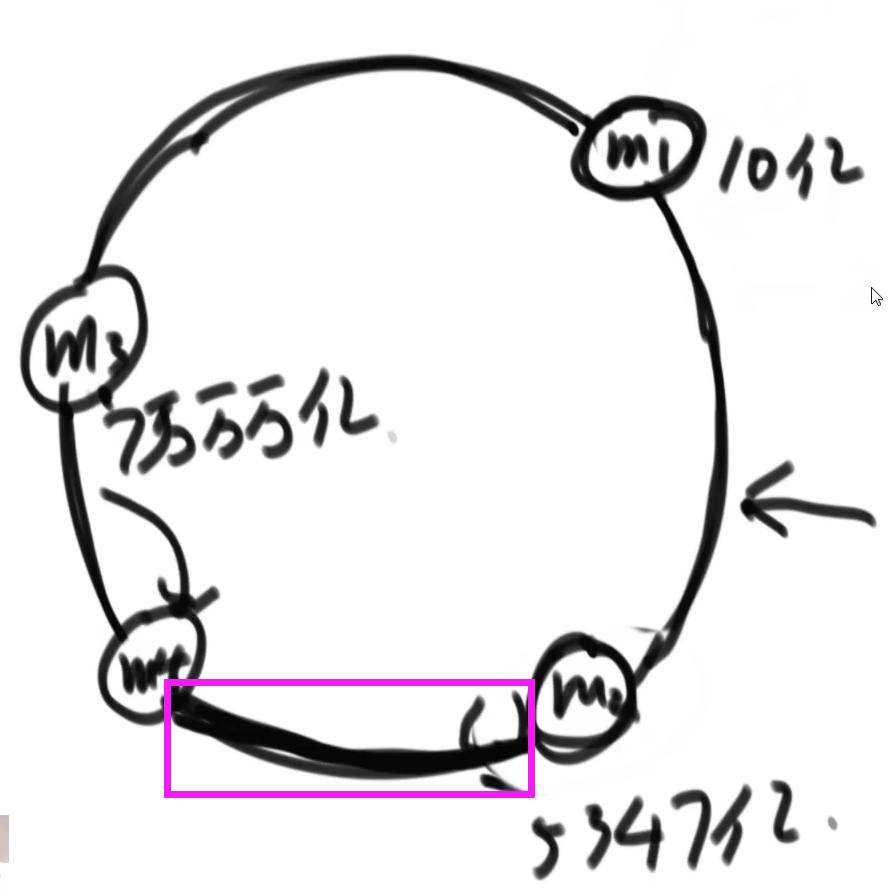 m1 10亿
m3
7万万万亿
m4
m2
5347亿